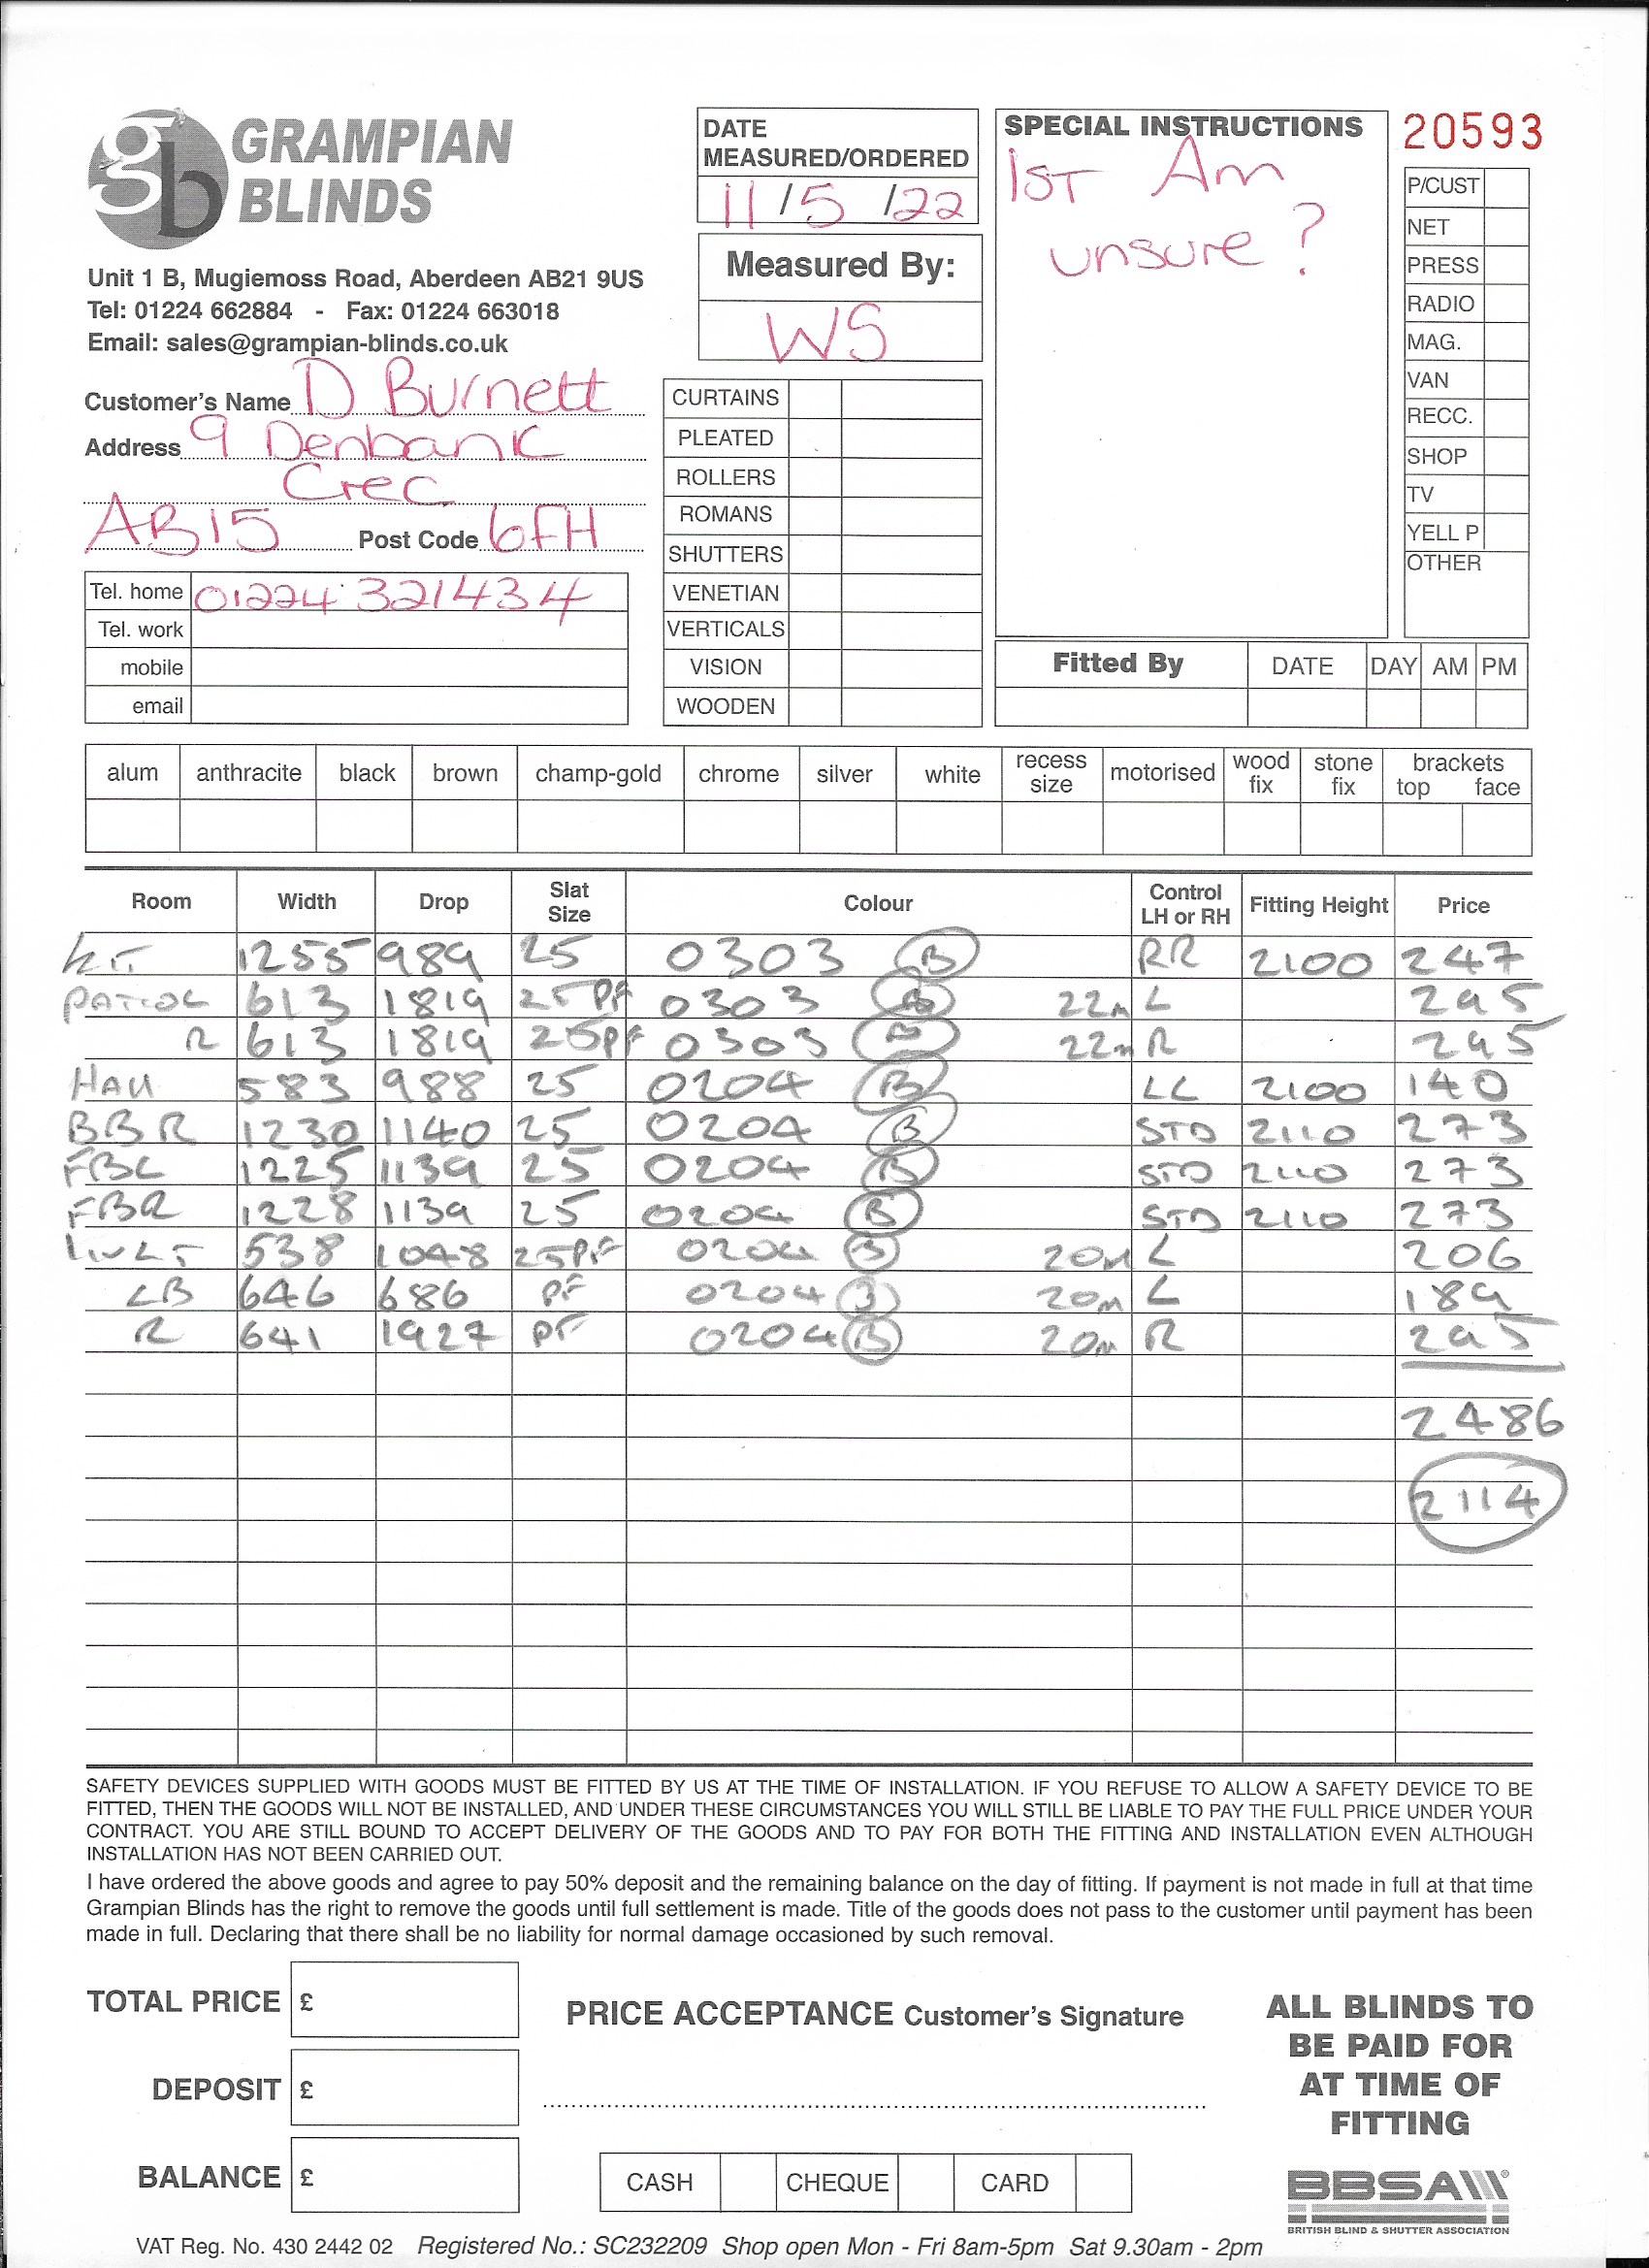 gb GRAMPIAN BLINDS
Unit 1 B, Mugiemoss Road, Aberdeen AB21 9US
Tel: 01224 662884 - Fax: 01224 663018
Email: sales@grampian-blinds.co.uk
Customer's Name D Burnett
Address 9 Denbank
Crec
AB15 Post Code 6FH
Tel. home 01224 321434
Tel. work
mobile
email
DATE
MEASURED/ORDERED
11/5/22
Measured By:
WS
CURTAINS
PLEATED
ROLLERS
ROMANS
SHUTTERS
VENETIAN
VERTICALS
VISION
WOODEN
SPECIAL INSTRUCTIONS
1ST Am
unsure ?
20593
P/CUST
NET
PRESS
RADIO
MAG.
VAN
RECC.
SHOP
TV
YELL P
OTHER
Fitted By DATE DAY AM PM
alum anthracite black brown champ-gold chrome silver white recess size motorised wood fix stone fix brackets top face
Room Width Drop Slat Size Colour Control LH or RH Fitting Height Price
KIT 1255 989 25 0303 B RR 2100 247
PATIO L 613 1819 25 PF 0303 B 22m L 295
R 613 1819 25PF 0303 B 22m R 295
HALL 583 988 25 0204 B LL 2100 140
BBR 1230 1140 25 0204 B STD 2110 273
FBL 1225 1139 25 0204 B STD 2110 273
FBR 1228 1139 25 0204 B STD 2110 273
538 1048 25PF 0204 B 20m L 206
LB 646 686 PF 0204 B 20m L 189
R 641 1927 PF 0204 B 20m R 295
2486
2114
SAFETY DEVICES SUPPLIED WITH GOODS MUST BE FITTED BY US AT THE TIME OF INSTALLATION. IF YOU REFUSE TO ALLOW A SAFETY DEVICE TO BE
FITTED, THEN THE GOODS WILL NOT BE INSTALLED, AND UNDER THESE CIRCUMSTANCES YOU WILL STILL BE LIABLE TO PAY THE FULL PRICE UNDER YOUR
CONTRACT. YOU ARE STILL BOUND TO ACCEPT DELIVERY OF THE GOODS AND TO PAY FOR BOTH THE FITTING AND INSTALLATION EVEN ALTHOUGH
INSTALLATION HAS NOT BEEN CARRIED OUT.
I have ordered the above goods and agree to pay 50% deposit and the remaining balance on the day of fitting. If payment is not made in full at that time
Grampian Blinds has the right to remove the goods until full settlement is made. Title of the goods does not pass to the customer until payment has been
made in full. Declaring that there shall be no liability for normal damage occasioned by such removal.
TOTAL PRICE £
DEPOSIT £
BALANCE £
PRICE ACCEPTANCE Customer's Signature
CASH CHEQUE CARD
ALL BLINDS TO
BE PAID FOR
AT TIME OF
FITTING
BBSA
BRITISH BLIND & SHUTTER ASSOCIATION
VAT Reg. No. 430 2442 02 Registered No.: SC232209 Shop open Mon - Fri 8am-5pm Sat 9.30am - 2pm